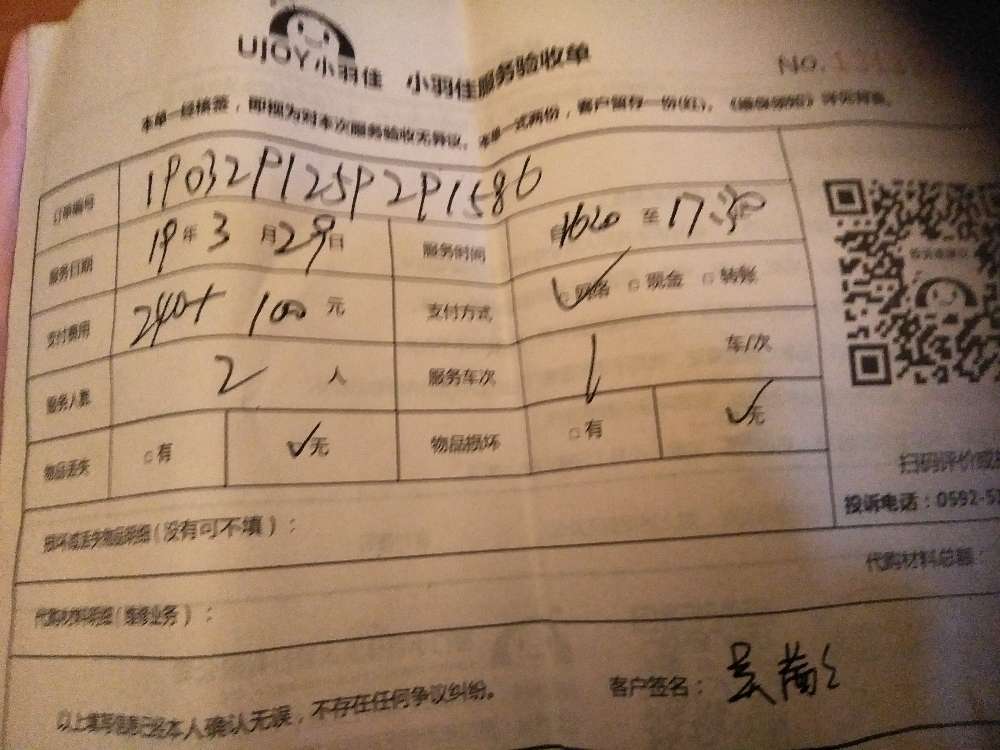 UJOY小羽佳 小羽佳服务验收单 NO.
本单一经核签，即视为对本次服务验收无异议。本单一式两份，客户留存一份(红)。
订单编号 1903291259291586
服务日期 19年3月29日 服务时间 自1620至17:30
支付费用 240+100元 支付方式 网络 □现金 □转账
服务人数 2人 服务车次 1 车/次
物品丢失 □有 ✓无 物品损坏 □有 ✓无
扫码评价或
投诉电话：0592-5
损坏或丢失物品明细（没有可不填）：
代购材料总额：
代购材料明细（维修业务）：
以上填写信息已经本人确认无误，不存在任何争议纠纷。 客户签名：